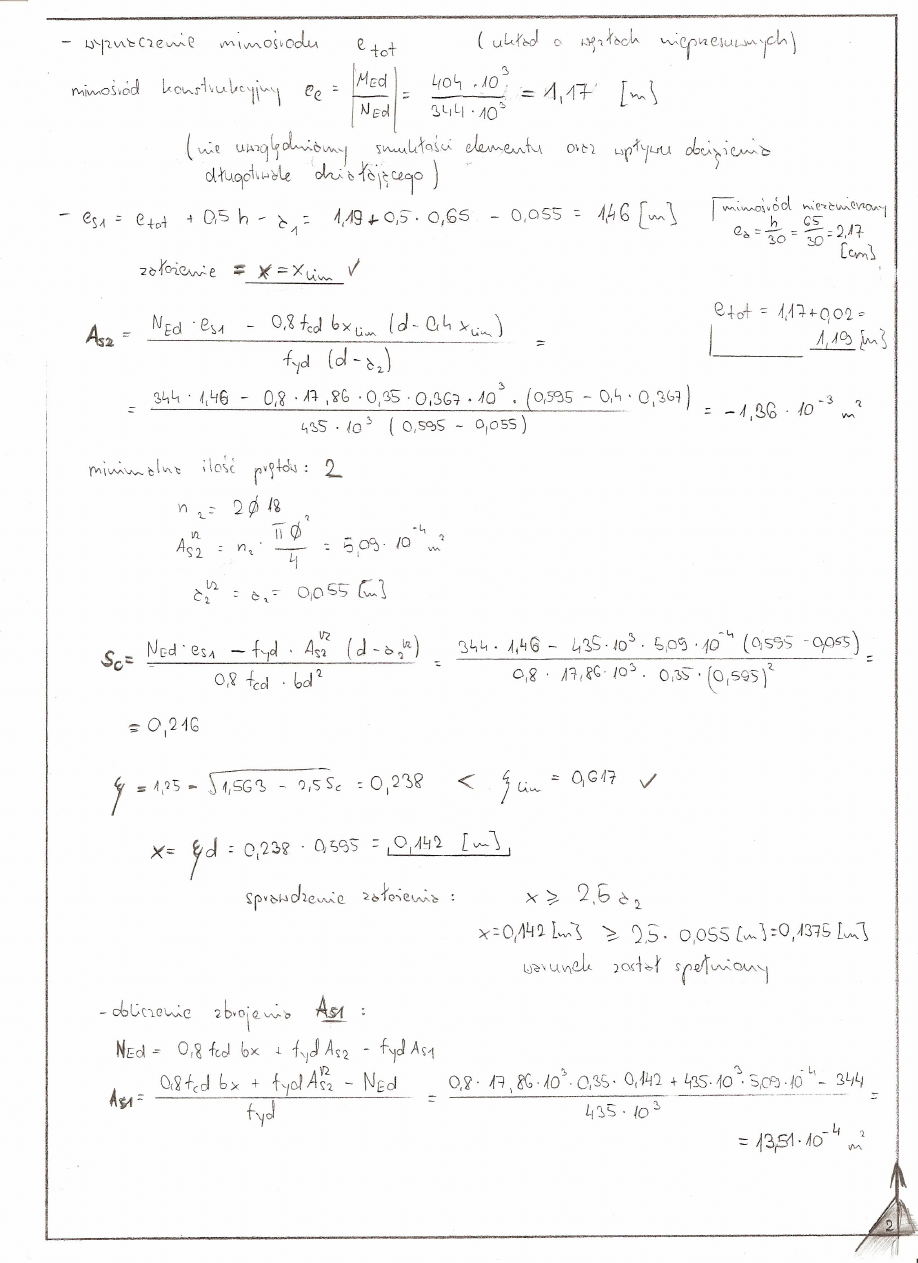 - wyznaczenie mimośrodu e_tot (układ o węzłach nieprzesuwnych)
mimośród konstrukcyjny e_e = |M_Ed / N_Ed| = 404 · 10³ / 344 · 10³ = 1,17 [m]
(nie uwzględniamy smukłości elementu oraz wpływu obciążenia
długotrwale działającego)
- e_s1 = e_tot + 0,5 h - a_1 = 1,19 + 0,5 · 0,65 - 0,055 = 1,46 [m]
mimośród niezamierzony
e_a = h/30 = 65/30 = 2,17
[cm]
założenie = x = x_lim ✓
e_tot = 1,17 + 0,02 =
1,19 [m]
A_s2 = (N_Ed · e_s1 - 0,8 f_cd b x_lim (d - 0,4 x_lim)) / (f_yd (d - a_2)) =
= (344 · 1,46 - 0,8 · 17,86 · 0,35 · 0,367 · 10³ · (0,595 - 0,4 · 0,367)) / (435 · 10³ (0,595 - 0,055)) = -1,36 · 10⁻³ m²
minimalna ilość prętów: 2
n_2 = 2 ϕ 18
A_s2^1/2 = n_2 · πϕ²/4 = 5,09 · 10⁻⁴ m²
a_2^1/2 = a_2 = 0,055 [m]
S_c = (N_Ed · e_s1 - f_yd · A_s2^1/2 (d - a_2^1/2)) / (0,8 f_cd · bd²) = (344 · 1,46 - 435 · 10³ · 5,09 · 10⁻⁴ (0,595 - 0,055)) / (0,8 · 17,86 · 10³ · 0,35 · (0,595)²) =
= 0,216
ξ = 1,25 - √(1,563 - 2,5 S_c) = 0,238 < ξ_lim = 0,617 ✓
x = ξ d = 0,238 · 0,595 = 0,142 [m]
sprawdzenie założenia : x ≥ 2,5 a_2
x = 0,142 [m] ≥ 2,5 · 0,055 [m] = 0,1375 [m]
warunek został spełniony
- obliczenie zbrojenia A_s1 :
N_Ed = 0,8 f_cd bx + f_yd A_s2 - f_yd A_s1
A_s1 = (0,8 f_cd bx + f_yd A_s2^1/2 - N_Ed) / f_yd = (0,8 · 17,86 · 10³ · 0,35 · 0,142 + 435 · 10³ · 5,09 · 10⁻⁴ - 344) / (435 · 10³) =
= 13,51 · 10⁻⁴ m²
2